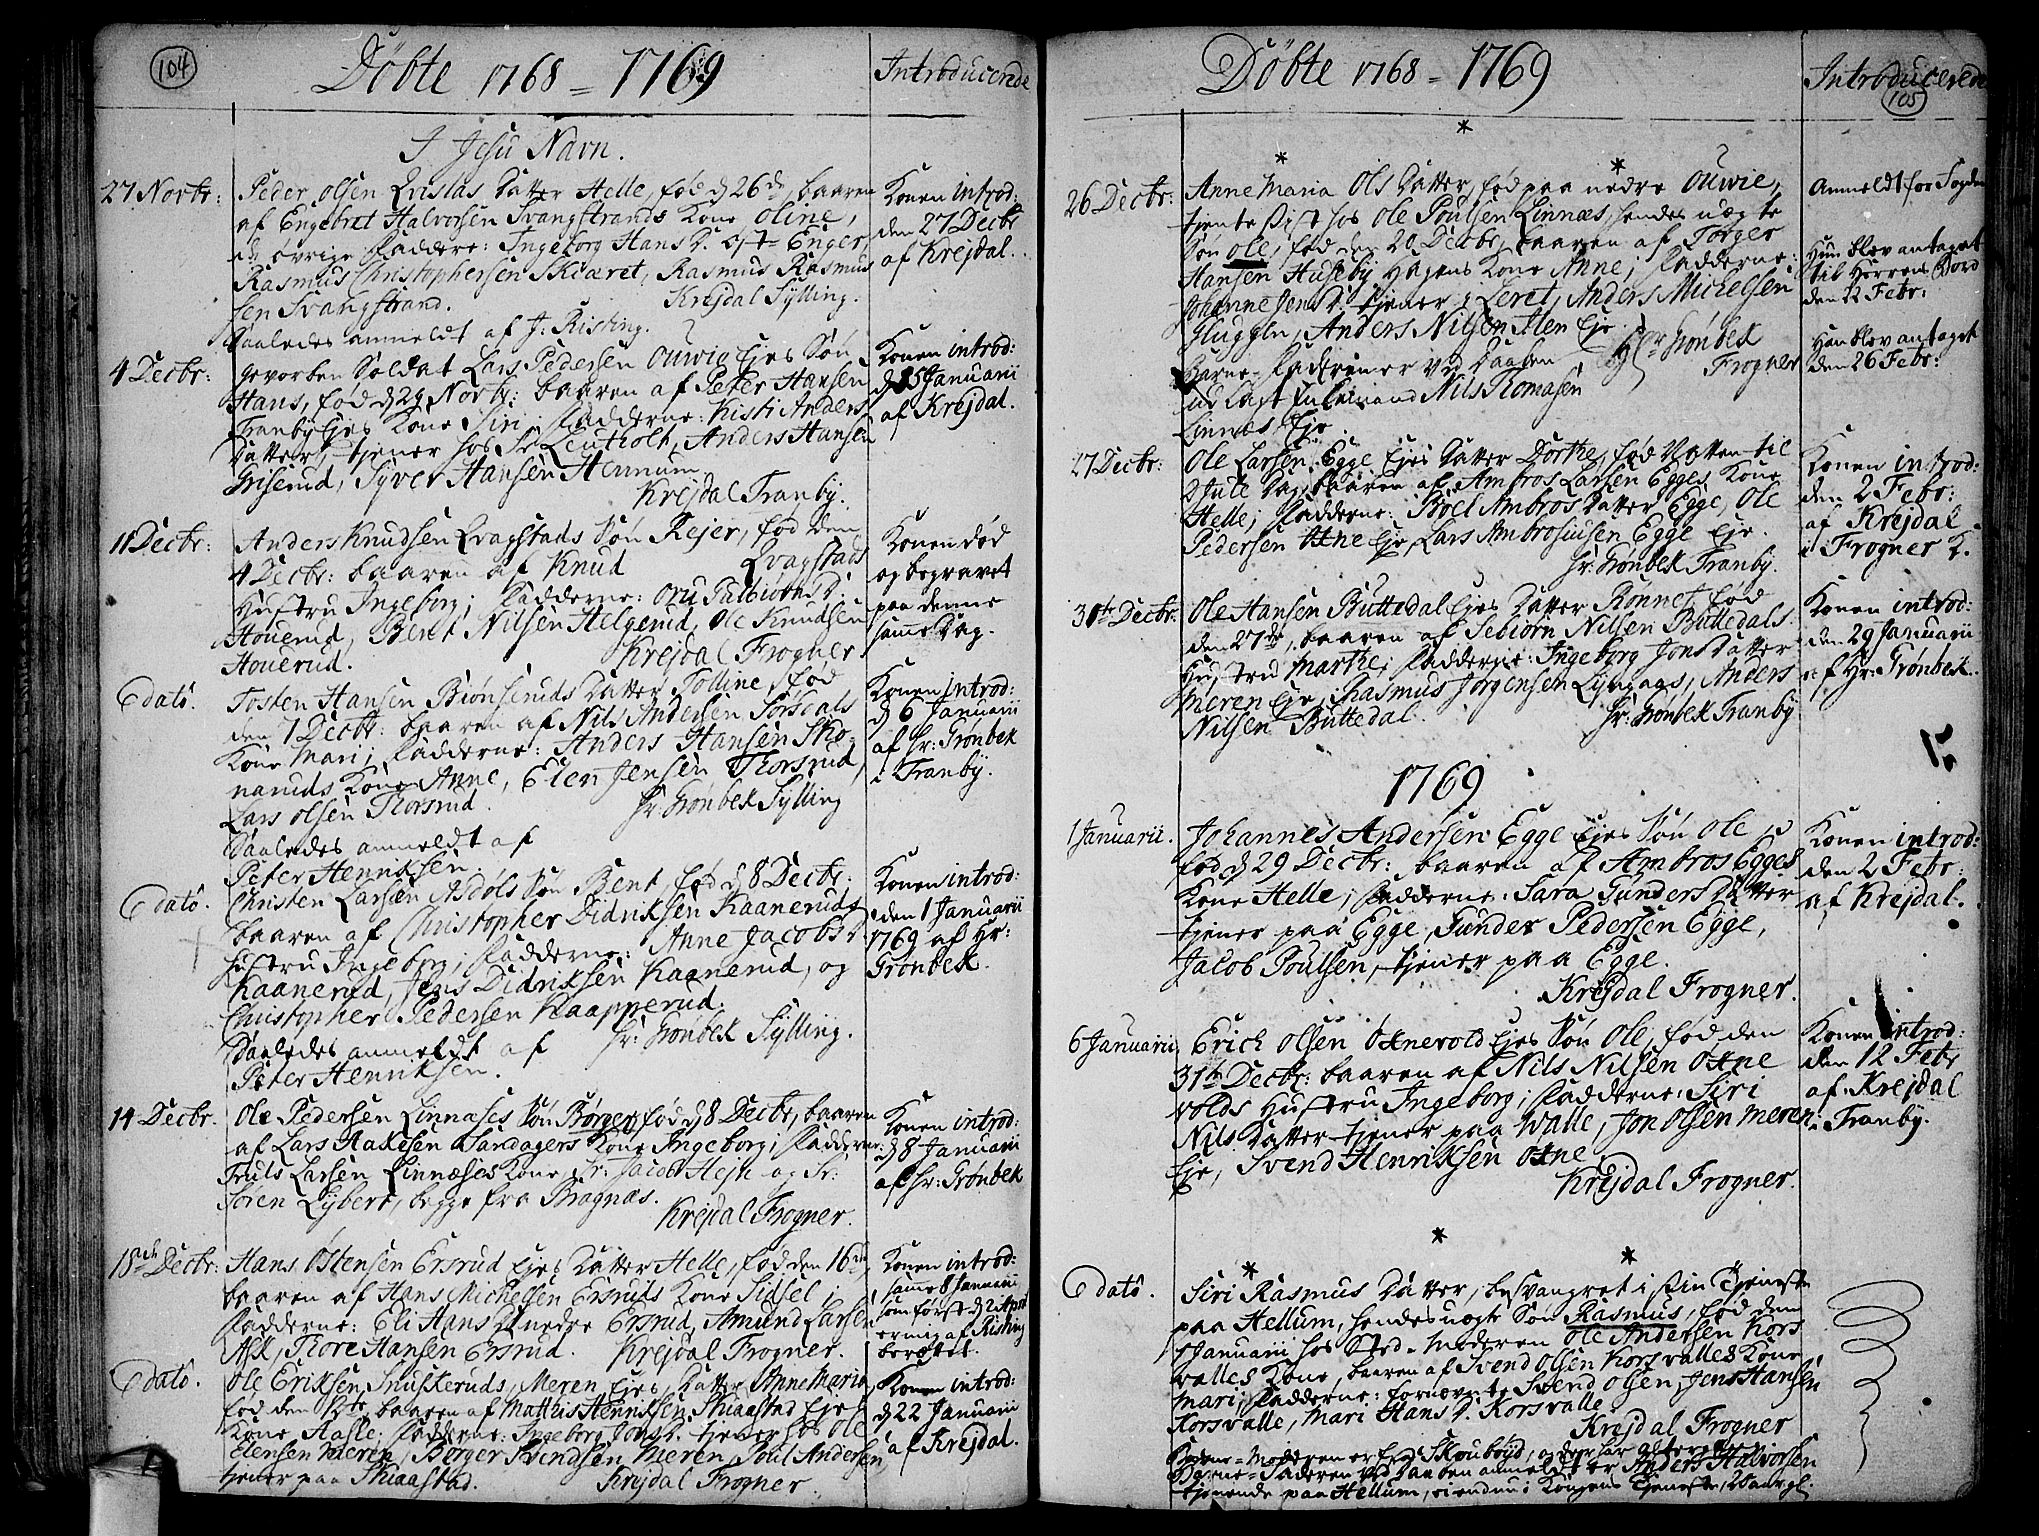 104
Döbte 1768 = 1769
Introducerede
I Jesu Navn.
27 Novbr:
Peder Olsen Qvislas Datter Helle, föd d 26de, baaren
af Engebret Halvorsen Svangstrands Kone Oline,
de övrige Fadderne: Ingeborg Hans D. Enger,
Rasmus Christophersen Skiæret, Rasmus Rasmus
sen Svangstrand. Krejdal Sylling.
Saaledes anmeldt af J: Risting.
Konen introd:
den 27 Decbr
af Krejdal.
4 Decbr:
Gevorben Soldat Lars Pedersen Ouwie Ejes Sön
Hans, föd d 29 Novbr: baaren af Peter Hansen
Tranby Ejes Kone Siri; Fadderne: Kisti Anders
Datter, tjener hos Sr Leutholt, Anders Hansen
Griserud, Syver Hansen Hennum
Krejdal Tranby.
Konen introd:
d 15 Januarii
af Krejdal.
11 Decbr:
Anders Knudsen Qvagstads Sön Rejer, föd den
4 Decbr: baaren af Knud Qvagstads
Hustru Ingeborg; Fadderne: Oru Gulbiörns D:
Houerud, Bent Nilsen Helgerud, Ole Knudsen
Houerud. Krejdal Frogner
Konen död
og begravet
paa denne
samme Dag.
E dato.
Tosten Hansen Biönseruds Datter Tolline, föd
den 7 Decbr: baaren af Nils Andersen Sörsdals
Kone Mari; Fadderne: Anders Hansen Sko-
naruds Kone Anne, Elen Jensen Thorsrud,
Lars Olsen Thorsrud. Hr: Grönbek Sylling
Saaledes anmeldt af
Peter Henriksen.
Konen introd:
d 6 Januarii
af Hr: Grönbek
i Tranby.
E dato.
Christen Larsen Asdöls Sön Bent, föd d 8 Decbr:
baaren af Christopher Didriksen Kaaneruds
Hustru Ingeborg; Fadderne: Anne Jacobs D.
Kaanerud, Jens Didriksen Kaanerud, og
Christopher Pedersen Kaapperud.
Hr: Grönbek Sylling.
Saaledes anmeldt af
Peter Henriksen.
Konen introd:
den 1 Januarii
1769 af Hr:
Grönbek.
14 Decbr.
Ole Pedersen Linnæses Sön Börger, föd d 8 Decbr, baaren
af Lars Aakesen Sandagers Kone Ingeborg; Fadderne
Truls Larsen Linnæses Kone, Sr: Jacob Hejn og Sr:
Sören Lyberg, begge fra Bragnæs.
Krejdal Frogner.
Konen introd:
d 8 Januarii
af Hr: Grönbek
18de Decbr:
Hans Östensen Ersrud Ejes Datter Helle, föd den 16de
baaren af Hans Michelsen Ersruds Kone Sidsel;
Fadderne: Eli Hans D. nedre Ersrud, Amund Larsen
Ask, Thore Hansen Ersrud. Krejdal Frogner.
Konen introd:
samme 8 Januarii
som först d 2 April
er mig af Risting
berettet.
E dato.
Ole Eriksen Snuskeruds, Meren Ejes, Datter Anne Maria
föd den 12te, baaren af Mattis Henriksen Skiaastad Ejes
Kone Aasle; Fadderne: Ingeborg Jons D. tjener hos Ole
Elensen Meren, Börger Svendsen Meren, Poul Andersen
tjener paa Skiaastad. Krejdal Frogner.
Konen introd:
d 22 Januarii
af Krejdal.
Döbte 1768 = 1769
Introducerede
105
26 Decbr:
Anne Maria Ols Datter, föd paa nedre Ouwie,
tjente sidst hos Ole Poulsen Linnæs, hendes uægte
Sön Ole, föd den 20 Decbr, baaren af Torger
Hansen Huseby Hagens Kone Anne; Fadderne:
Johanne Jens D. tjener i Leret, Anders Michelsen
Gluggen, Anders Nilsen Alen Eje. Hr Grönbek
Barne-Faderen er ved Daaben Frogner
udlagt Nils Tomasen
Linnæs Eje.
Anmeldt for Fogden
Hun blev antaget
til Herrens Bord
den 22 Febr:
Han blev antaget
den 26 Febr:
27 Decbr:
Ole Larsen Egge Ejes Datter Dorthe, föd Natten til
2 Jule Dag, baaren af Ambros Larsen Egges Kone
Helle; Fadderne: Boel Ambros Datter Egge, Ole
Pedersen Otne Eje, Lars Ambrosiusen Egge Eje.
Hr: Grönbek Tranby.
Konen introd:
den 2 Febr:
af Krejdal
i Frogner K.
31te Decbr:
Ole Hansen Buttedal Ejes Datter Rönnet, föd
den 27de, baaren af Sebiörn Nilsen Buttedals
Hustru Marthe; Fadderne: Ingeborg Jons Datter
Meren Eje, Rasmus Jörgensen Lyngaas, Anders
Nilsen Buttedal. Hr: Grönbek Tranby
Konen introd:
den 29 Januarii
af Hr: Grönbek.
1769
1 Januarii.
Johannes Andersen Egge Ejes Sön Ole
föd d 29 Decbr: baaren af Ambros Egges
Kone Helle; Fadderne: Sara Gunders Datter
tjener paa Egge, Gunder Pedersen Egge,
Jacob Poulsen, tjener paa Egge.
Krejdal Frogner.
Konen introd:
den 2 Febr:
af Krejdal.
6 Januarii
Erich Olsen Otnevold Ejes Sön Ole, föd den
31te Decbr: baaren af Nils Nilsen Otne
volds Hustru Ingeborg; Fadderne: Siri
Nils Datter tjener paa Walle, Jon Olsen Meren
Eje, Svend Henriksen Otne.
Krejdal Frogner.
Konen introd:
den 12 Febr
af Krejdal
i Tranby.
E dato.
Siri Rasmus Datter, besvangret i sin Tjeneste
paa Hellum, hendes uægte Sön Rasmus, föd den
1 Januarii hos Sted-Moderen Ole Andersen Kors
walles Kone, baaren af Svend Olsen Korsvalles Kone
Mari; Fadderne: fornævnte Svend Olsen, Jens Hansen
Korsvalle, Mari Hans D. Korsvalle.
Krejdal Frogner
Barne-Moderen er fra Skouboyd, og
Barne-Faderen ved Daaben anmeldt er Anders Halvorsen
tjenende paa Hellum, ei endnu i Kongens Tjeneste, 20 aar gl.